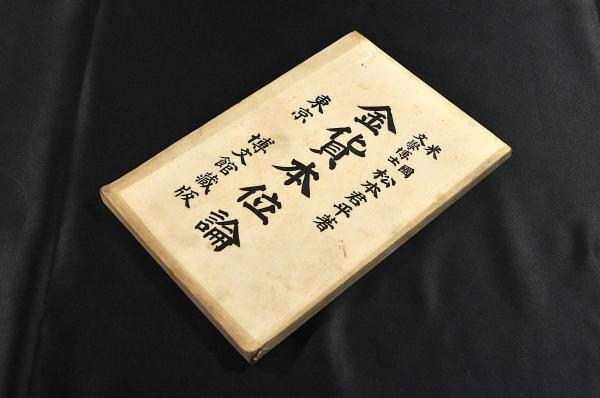 米國
文學博士 松本君平著
金貨本位論
東京 博文館藏版